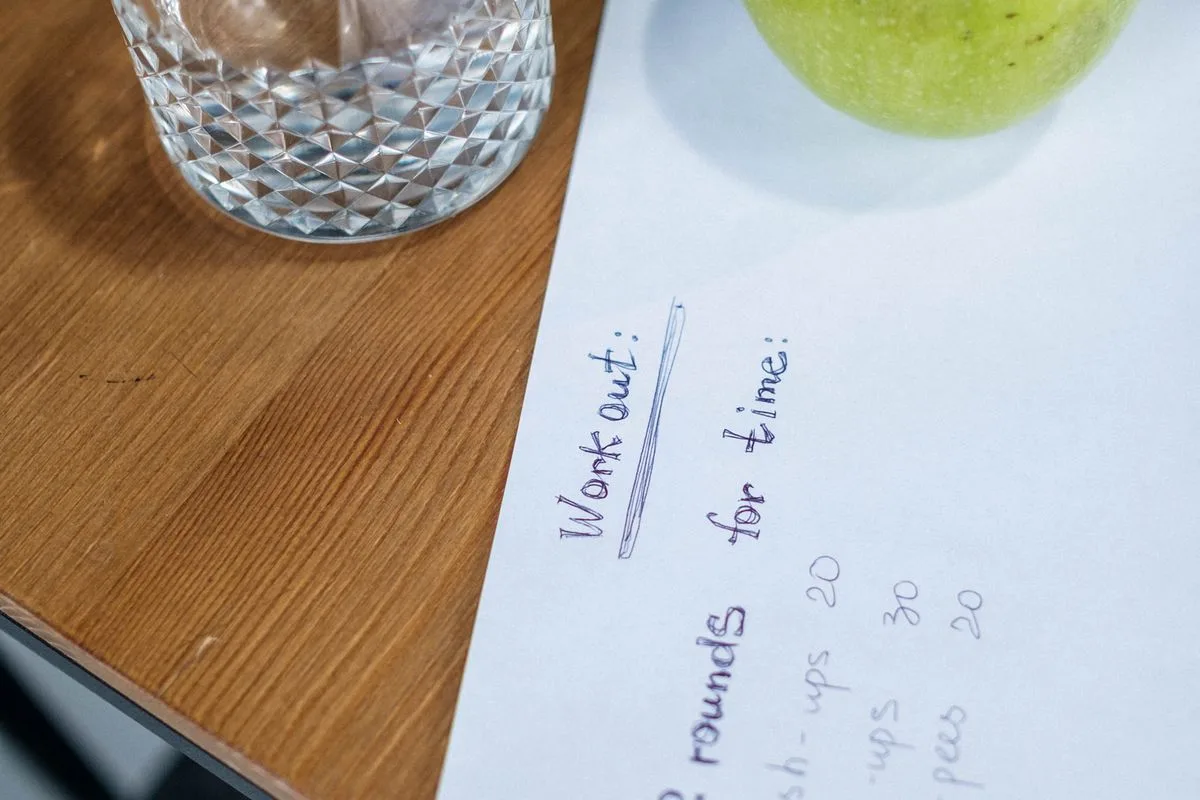 Work out:
rounds for time:
sh-ups 20
-ups 30
pees 20